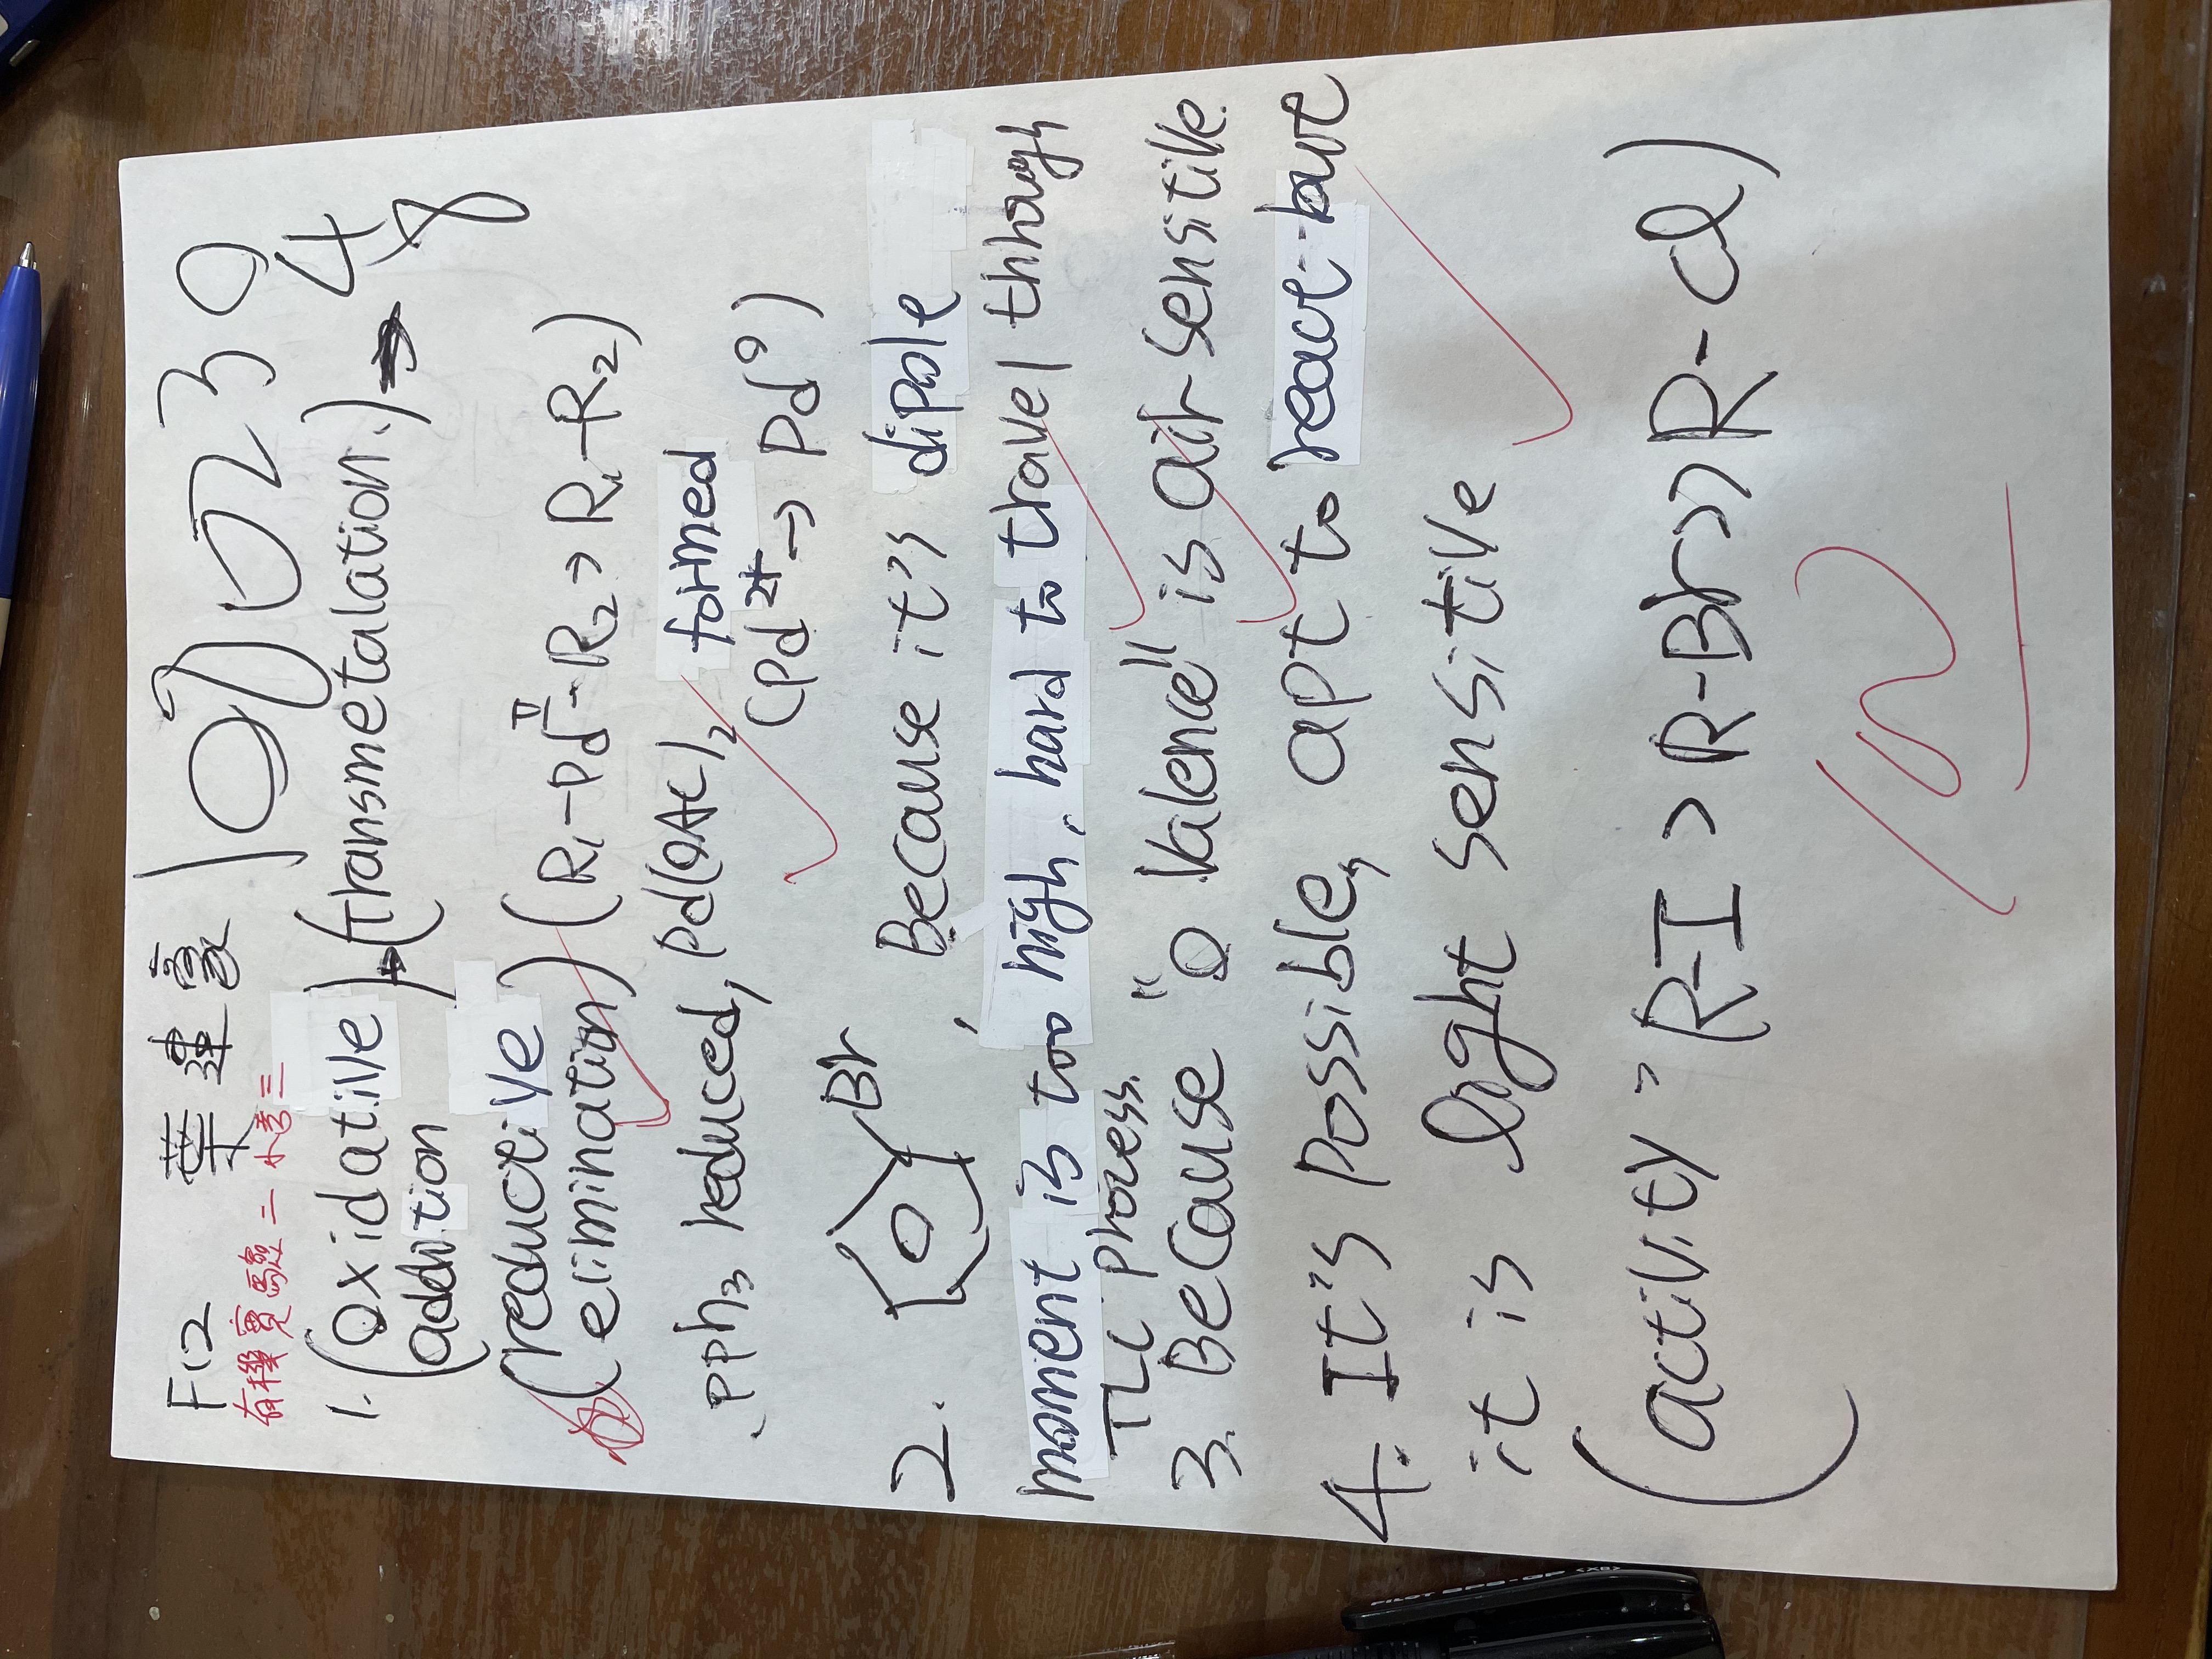 F12 葉建豪 108023048
有機實驗二 小考三
1. (Oxidative addition) → (transmetalation.) →
(reductive elimination) (R₁-Pd^Ⅱ-R₂ → R₁-R₂)
. pph₃ reduced, Pd(OAC)₂ formed
(Pd²⁺ → Pd⁰)
2. Br , Because it's dipole
moment is too high, hard to travel through
TLC process.
3. Because "0 Valence" is air sensitive.
4. It's possible, apt to react--but
it is light sensitive
(activity > R-I > R-Br >> R-Cl)